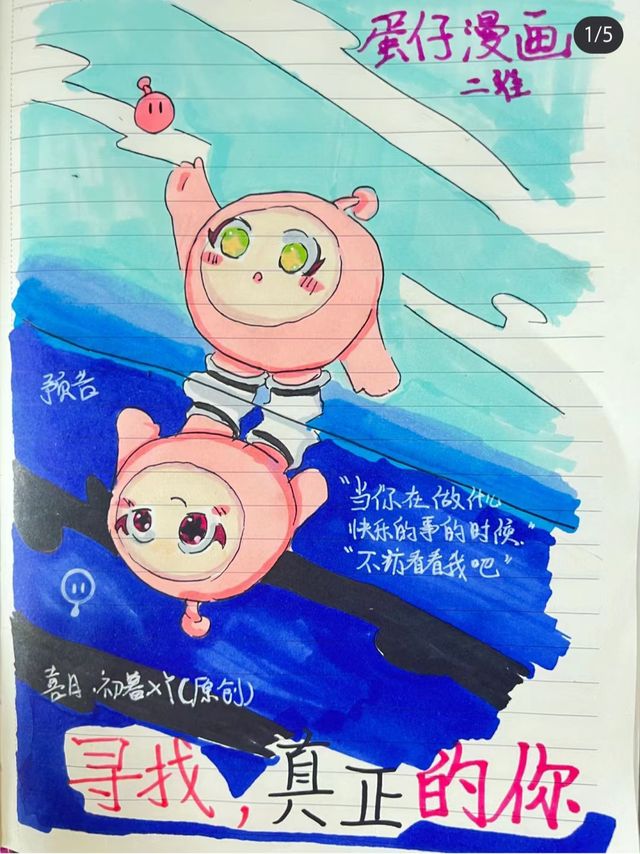 蛋仔漫画
二班
1/5
预告
"当你在做什么
快乐的事的时候."
"不妨看看我吧"
喜月.初暮×忄(原创)
寻找,真正的你